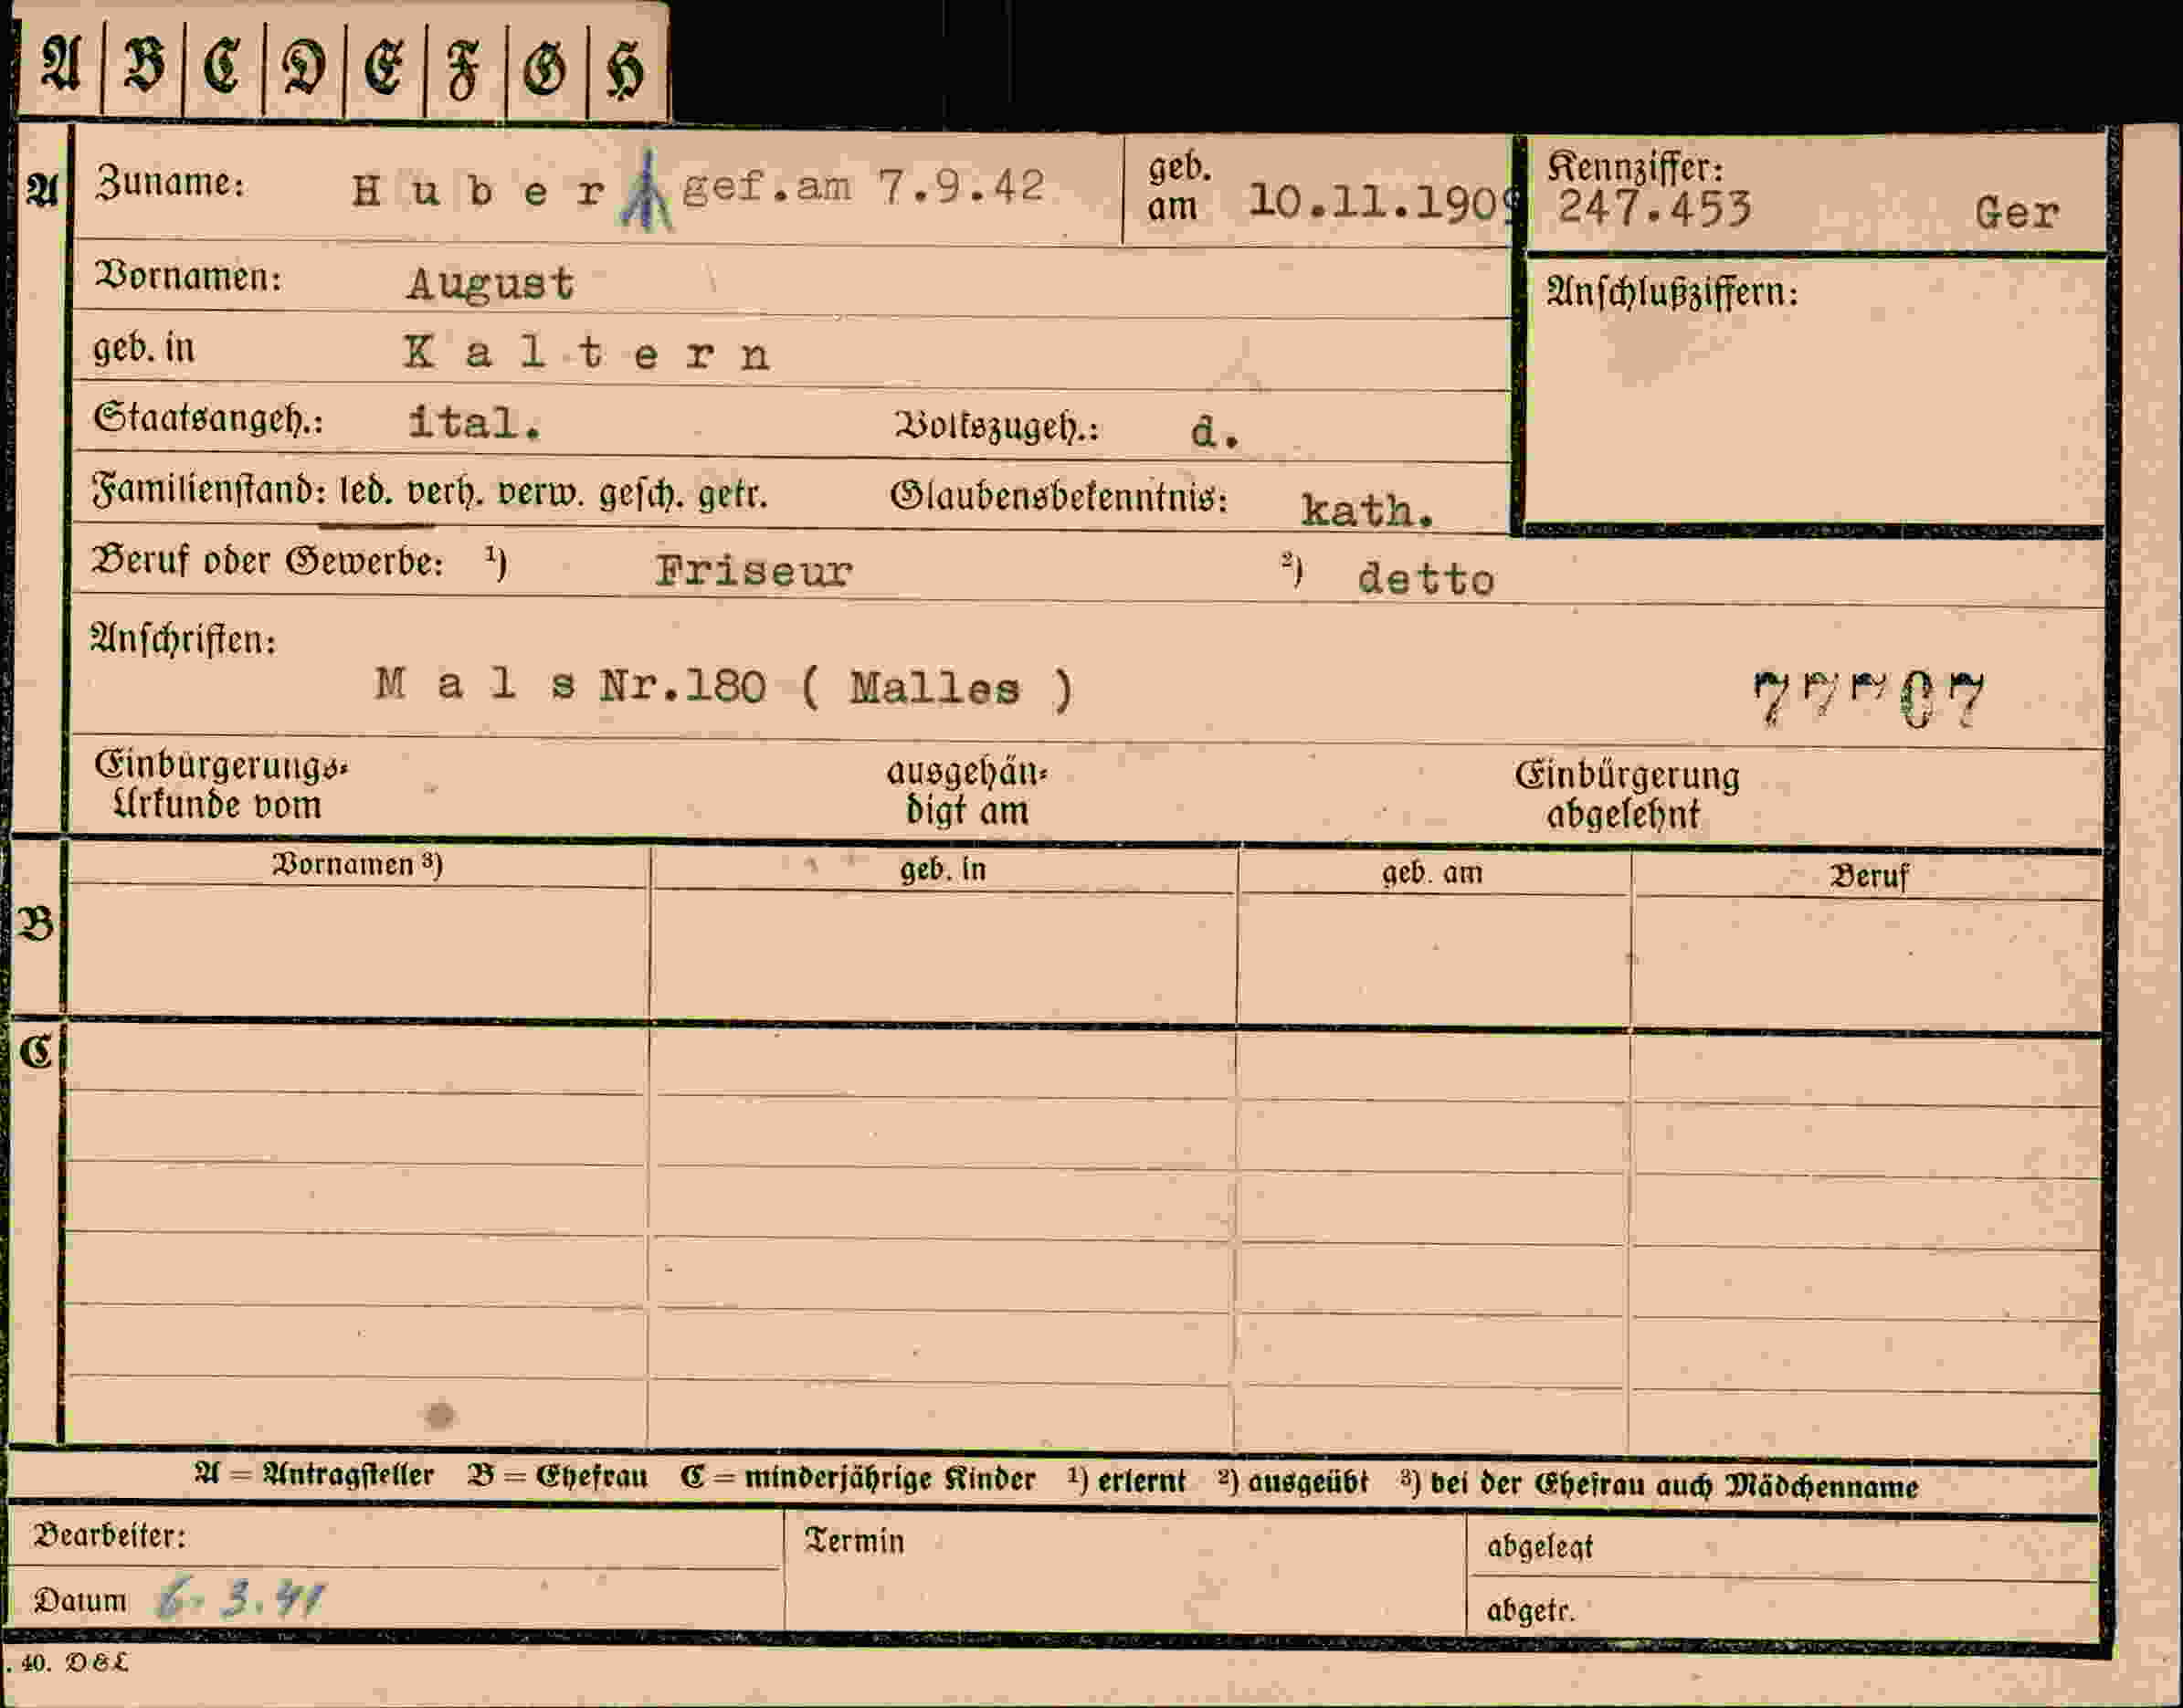 A B C D E F G H
A Zuname: Huber gef.am 7.9.42 geb. am 10.11.1909 Kennziffer: 247.453 Ger
Vornamen: August Anschlußziffern:
geb. in Kaltern
Staatsangeh.: ital. Volkszugeh.: d.
Familienstand: led. verh. verw. gesch. getr. Glaubensbekenntnis: kath.
Beruf oder Gewerbe: ¹) Friseur ²) detto
Anschriften:
Mals Nr.180 ( Malles ) 77707
Einbürgerungs- ausgehän- Einbürgerung
Urkunde vom digt am abgelehnt
Vornamen ³) geb. in geb. am Beruf
B
C
A = Antragsteller B = Ehefrau C = minderjährige Kinder ¹) erlernt ²) ausgeübt ³) bei der Ehefrau auch Mädchenname
Bearbeiter: Termin abgelegt
Datum 6.3.41 abgetr.
. 40. D & L